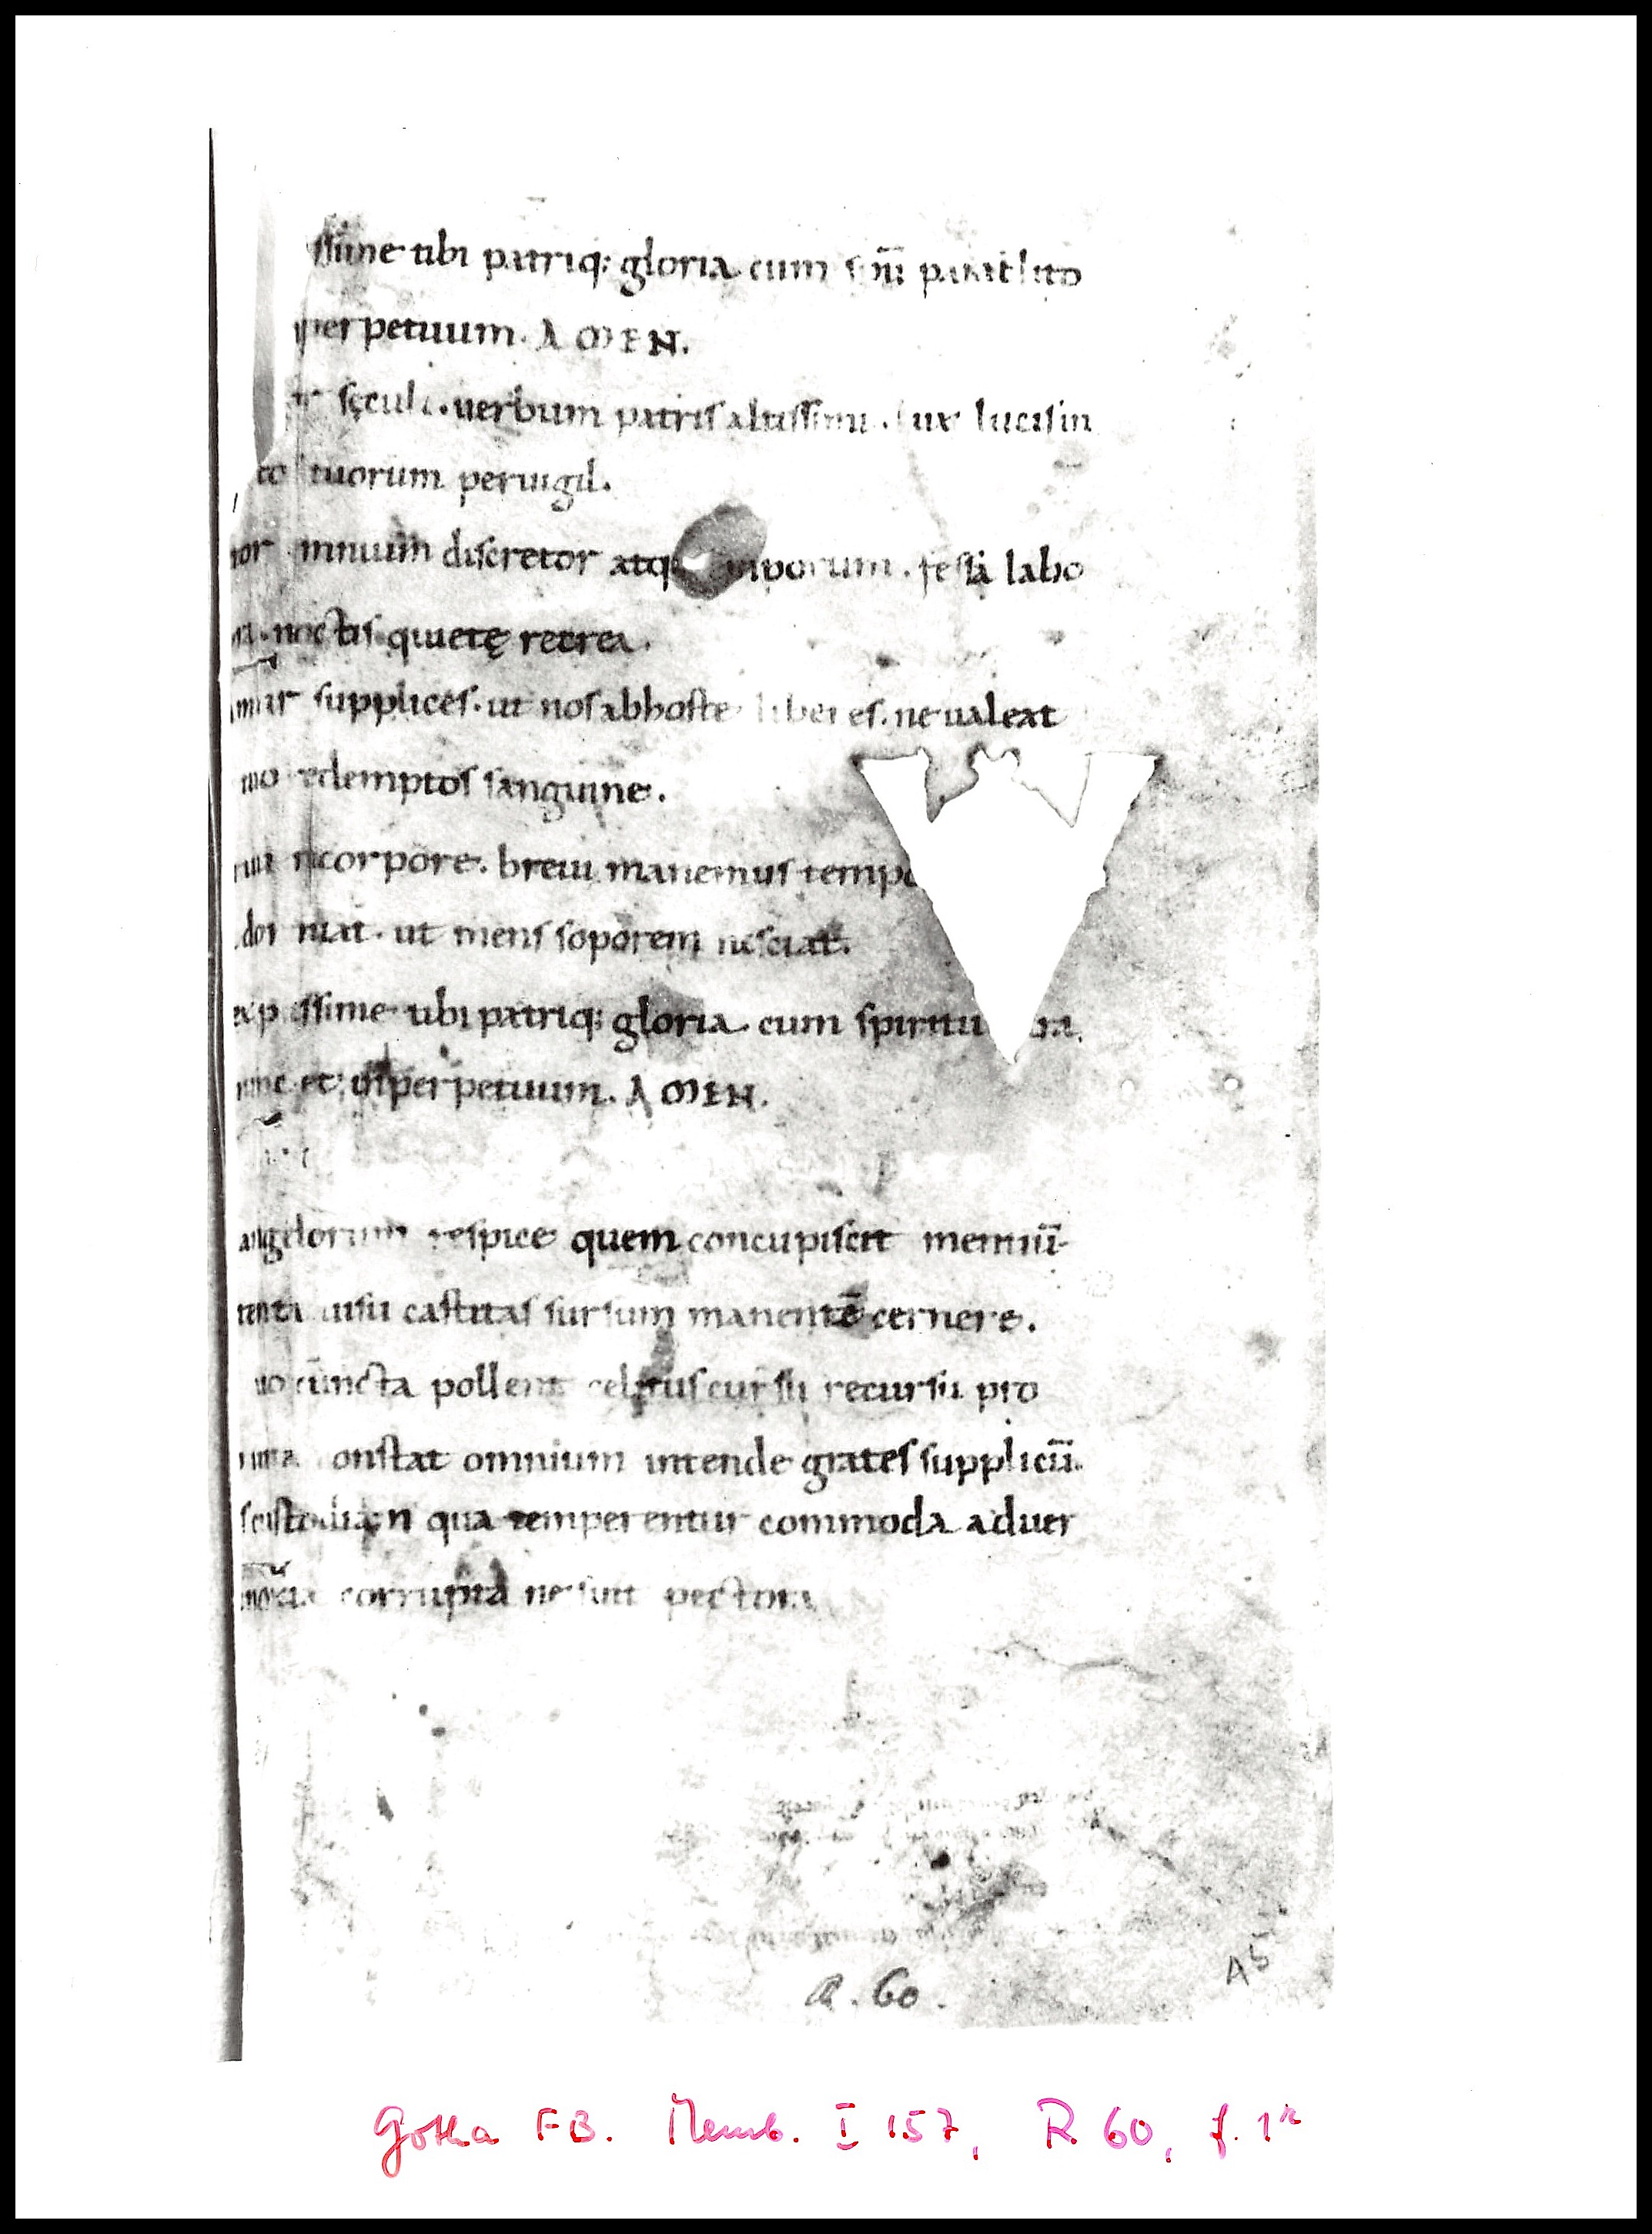 ssime tibi patriq; gloria cum sp̄u paraclito
perpetuum. AMEN.
sęculi. uerbum patris altissimi. lux lucis in
tuorum peruigil.
mnium discretor atq; mporum. fessa labo
noctis quietę recrea.
mur supplices. ut nos ab hoste liberes. ne ualeat
tuo redemptos sanguine.
corpore. breui manemus tempo
dormiat. ut mens soporem nesciat.
piissime tibi patriq; gloria cum spiritu para
nunc et inperpetuum. AMEN.
angelorum respice quem concupiscit mentiū
tenta uisu castitas sursum manentē cernere.
uo cūncta pollent celitus cursu recursu pro
constat omnium intende grates supplicū.
custodiam qua temperentur commoda aduer
corrupta ne sint pectora
R. 60.
A5
Gotha FB. Memb. I 157, R 60, f. 1r